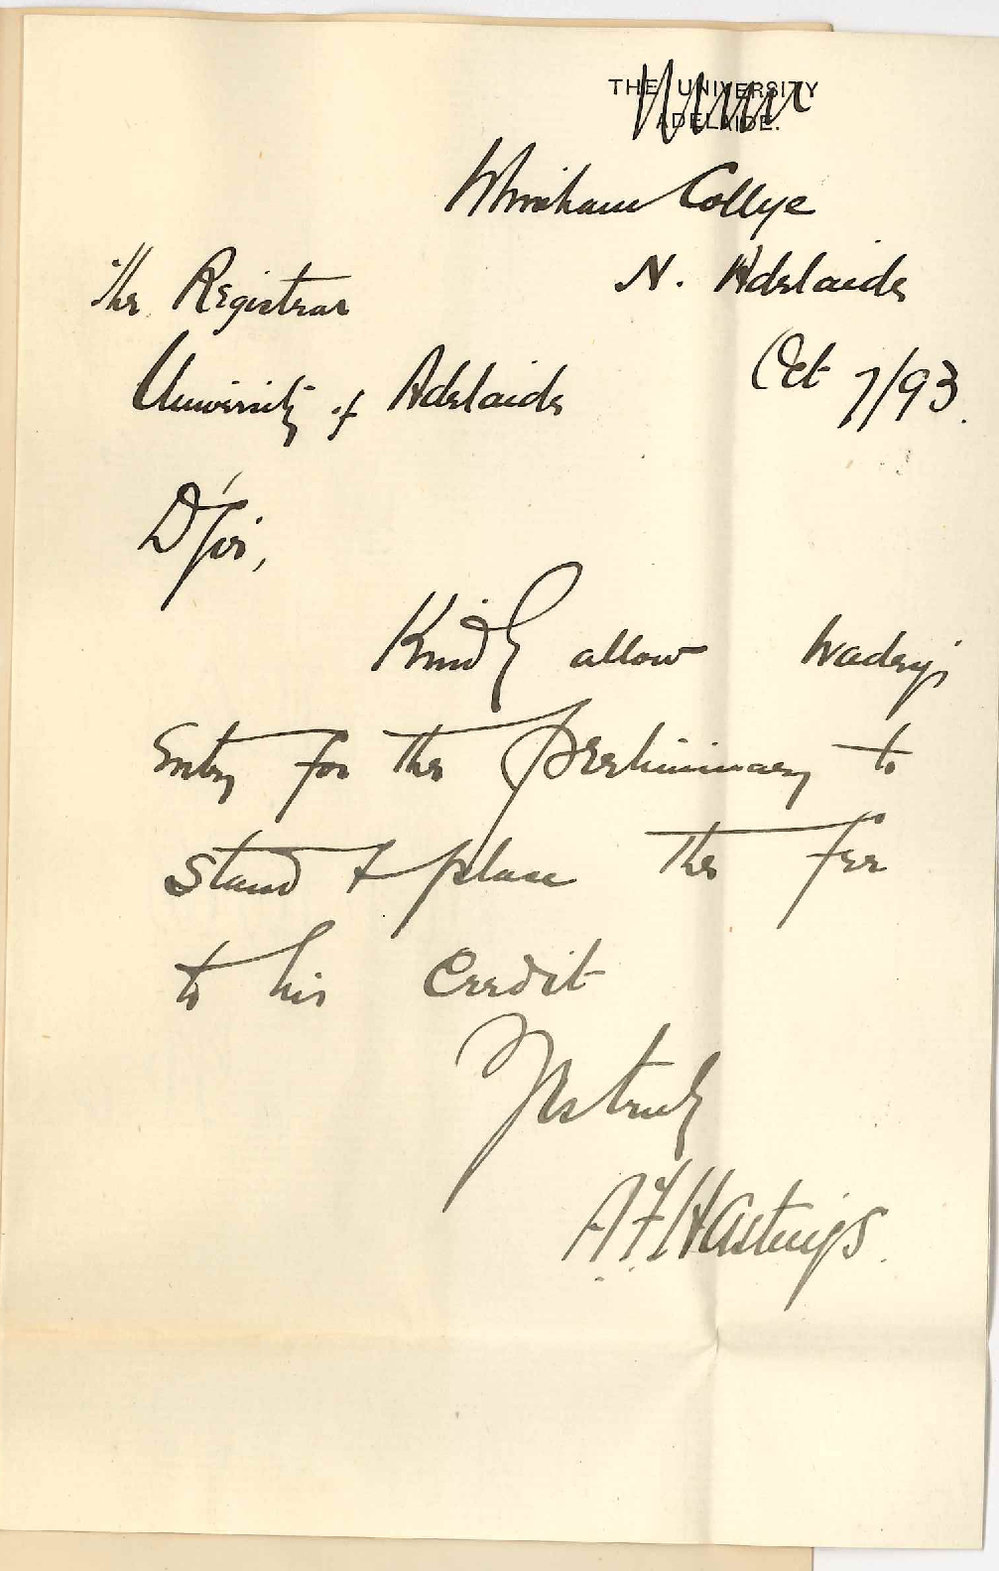 THE UNIVERSITY
ADELAIDE.
Whinham College
N. Adelaide
The Registrar
Oct 7/93.
University of Adelaide
D' Sir,
Kindly allow
Entry for the preliminary to
stand & place the fee
to his Credit
Yrs truly
A F Hastings.